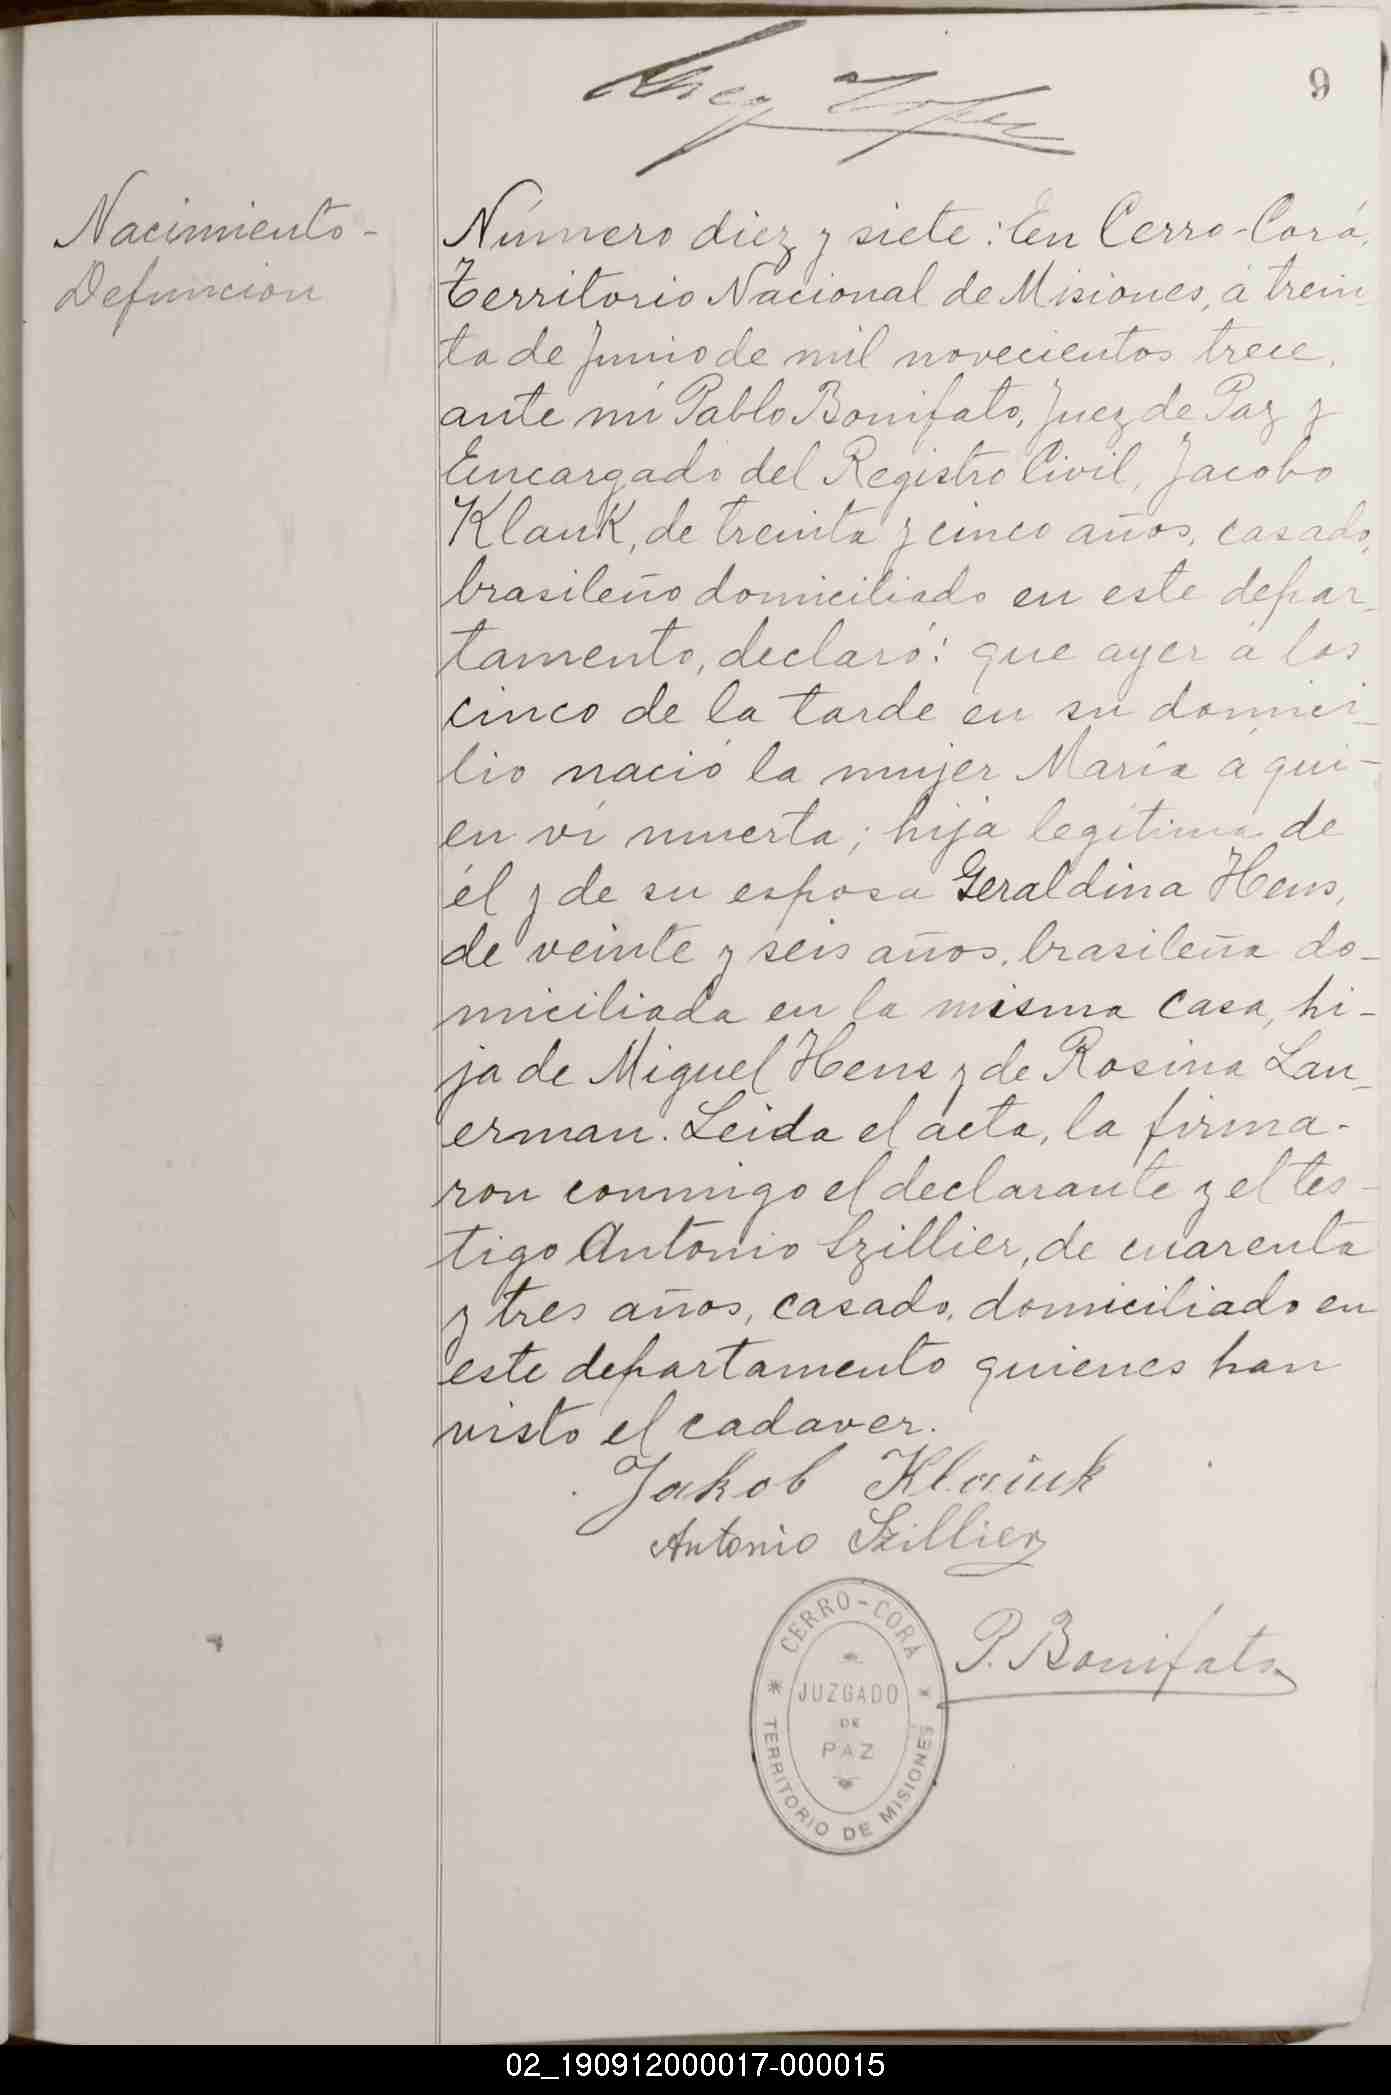 9
Nacimiento-
Defuncion
Número diez y siete: En Cerro-Corá,
Territorio Nacional de Misiones, á trein-
ta de Junio de mil novecientos trece,
ante mi Pablo Bonifato, Juez de Paz y
Encargado del Registro Civil, Jacobo
Klauk, de treinta y cinco años, casado,
brasileño domiciliado en este depar-
tamento, declaró: que ayer á las
cinco de la tarde en su domici-
lio nació la mujer María á qui-
en ví muerta; hija legítima de
él y de su esposa Geraldina Hens,
de veinte y seis años, brasileña do-
miciliada en la misma casa, hi-
ja de Miguel Hens y de Rosina Lan-
erman. Leida el acta, la firma-
ron conmigo el declarante y el tes-
tigo Antonio Szillier, de cuarenta
y tres años, casado, domiciliado en
este departamento quienes han
visto el cadaver.
Jakob Klauk
Antonio Szillier
P. Bonifato
CERRO-CORÁ
JUZGADO
DE
PAZ
TERRITORIO DE MISIONES
02_190912000017-000015